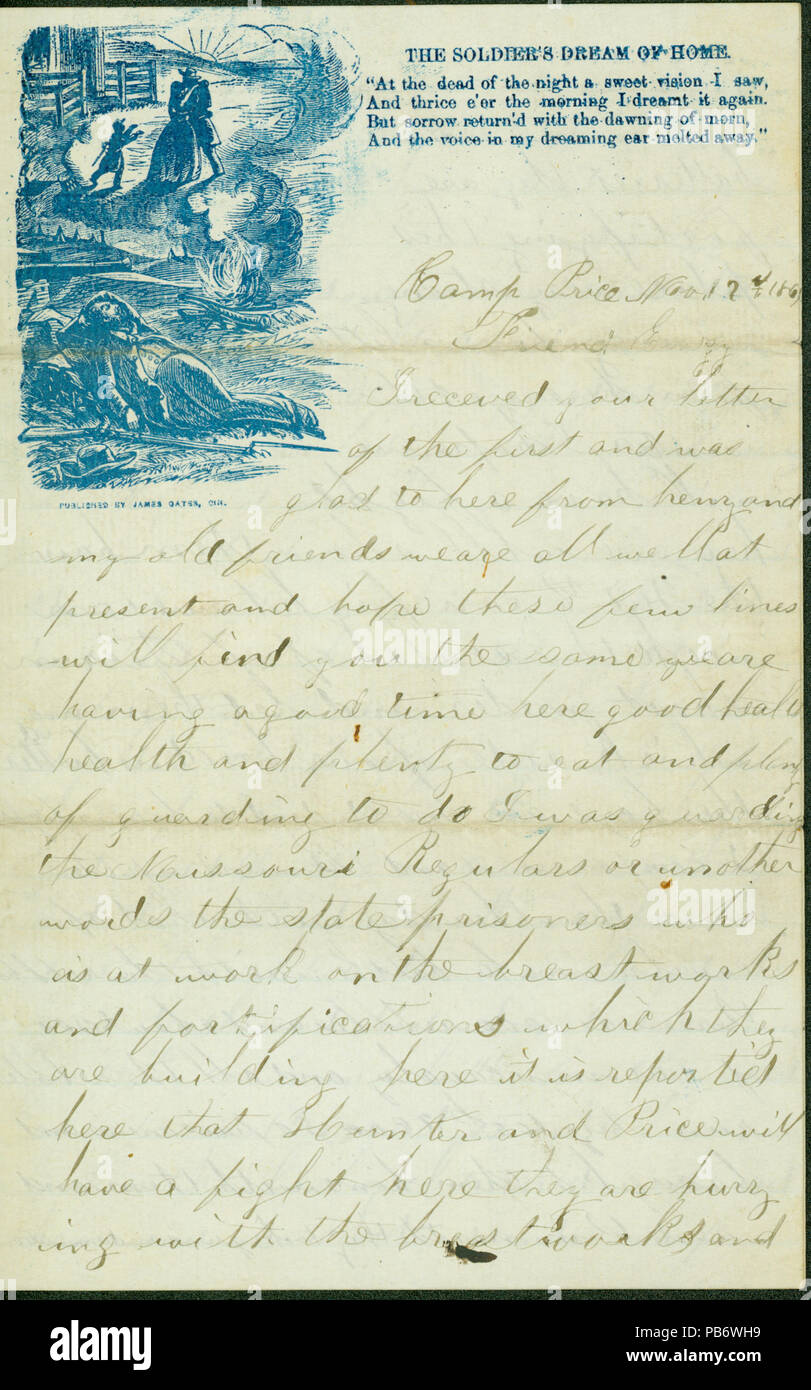 THE SOLDIER'S DREAM OF HOME.
"At the dead of the night a sweet vision I saw,
And thrice e'er the morning I dreamt it again.
But sorrow return'd with the dawning of morn,
And the voice in my dreaming ear melted away."
PUBLISHED BY JAMES GATES, CIN.
Camp Price Nov 12 186
Friend
I receved your letter
of the first and was
glad to here from henry and
my old friends we are all well at
present and hope these few lines
will find you the same we are
having a good time here good healt
health and plenty to eat and plenty
of guarding to do I was guarding
the Missouri Regulars or in other
words the state prisoners who
is at work on the breast works
and fortifications which they
are building here it is reported
here that Hunter and Price will
have a fight here they are hurry
ing with the breastworks and
alamy stock photo
alamy
PB6WH9
www.alamy.com